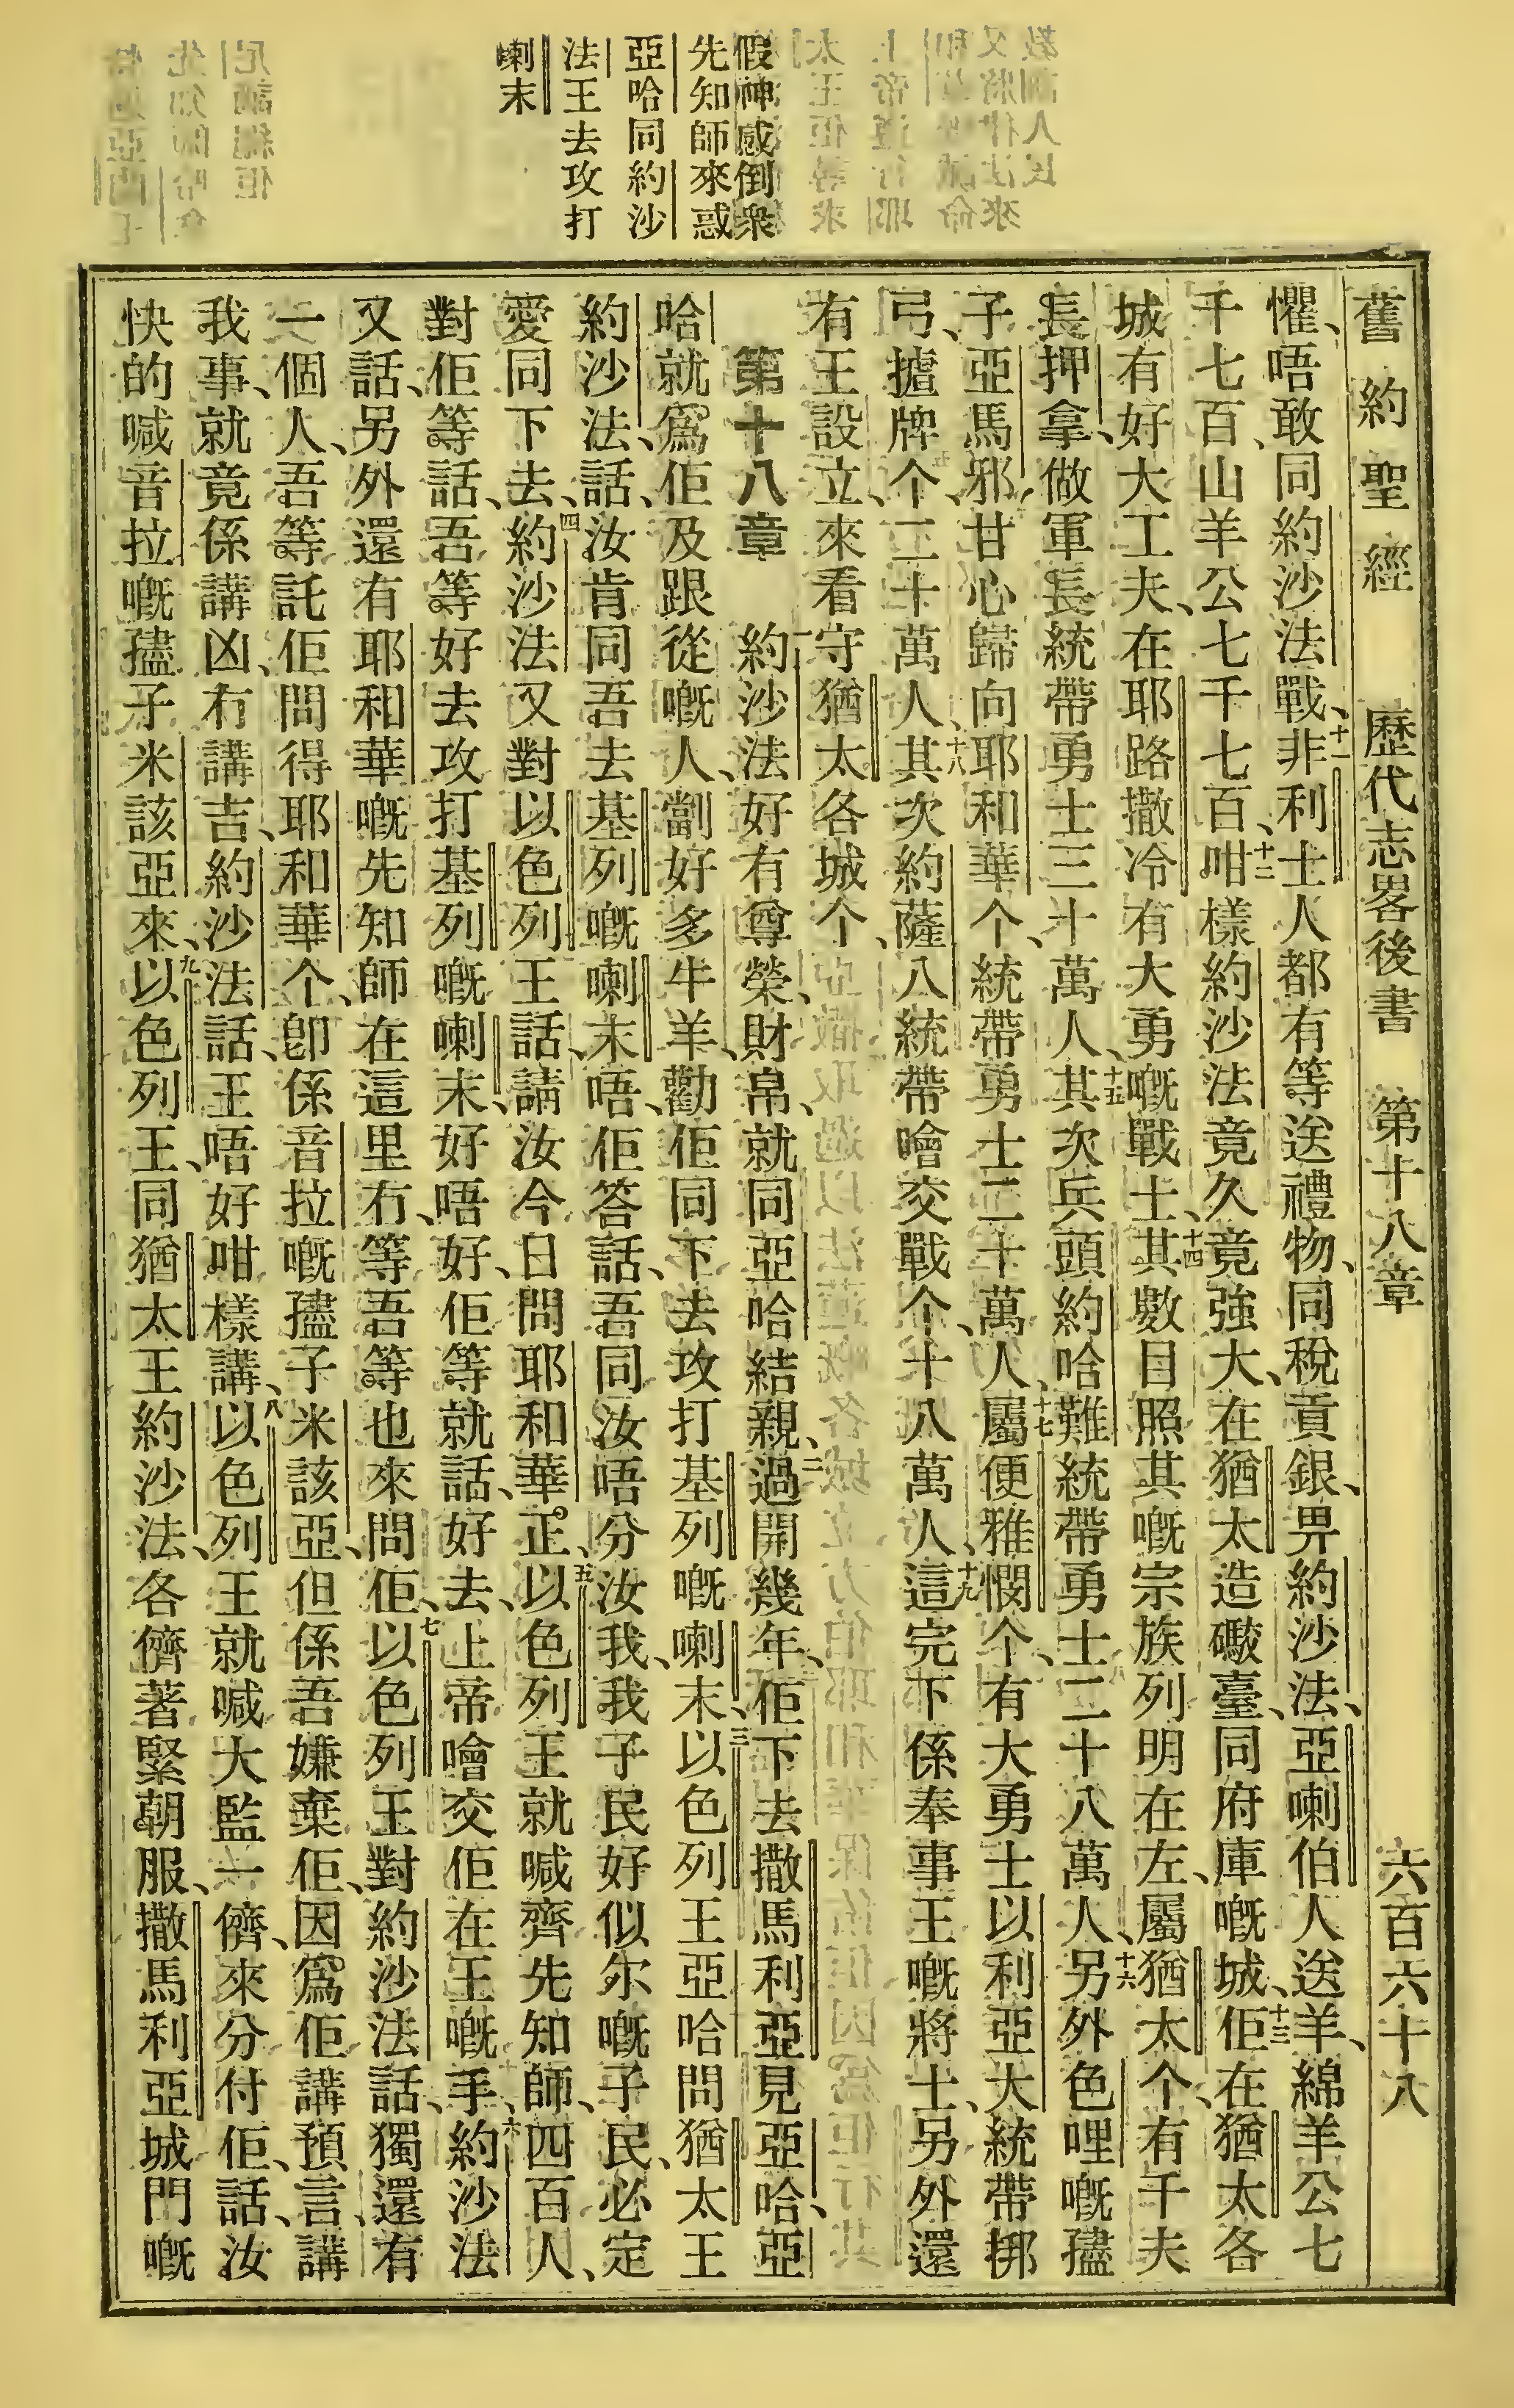 舊約聖經　歷代志畧後書　第十八章　六百六十八
假神感倒衆
先知師來惑
亞哈同約沙
法王去攻打
喇末
懼、唔敢同約沙法戰、十一非利士人都有等送禮物、同稅貢銀、畀約沙法、亞喇伯人送羊、綿羊公七
千七百、山羊公七千七百、十二咁樣約沙法竟久竟強大、在猶太造礮臺、同府庫嘅城、十三佢在猶太各
城有好大工夫、在耶路撒冷有大勇嘅戰士、十四其數目照其嘅宗族列明在左、屬猶太个、有千夫
長押拿、做軍長統帶勇士三十萬人、十五其次兵頭約哈難統帶勇士二十八萬人、十六另外色哩嘅孻
子亞馬邪、甘心歸向耶和華个、統帶勇士二十萬人、十七屬便雅憫个、有大勇士以利亞大統帶挷
弓、擄牌个二十萬人、十八其次約薩八統帶噲交戰个、十八萬人、十九這完下係奉事王嘅將士、另外還
有王設立、來看守猶太各城个、
第十八章　一約沙法好有尊榮、財帛、就同亞哈結親、二過開幾年、佢下去撒馬利亞見亞哈、亞
哈就爲佢及跟從嘅人、劏好多牛羊、勸佢同下去攻打基列嘅喇末、三以色列王亞哈問猶太王
約沙法、話、汝肯同吾去基列嘅喇末唔、佢答話、吾同汝唔分汝我、我子民好似尔嘅子民、必定
愛同下去、四約沙法又對以色列王話、請汝今日問耶和華正、五以色列王就喊齊先知師、四百人、
對佢等話、吾等好去攻打基列嘅喇末、好唔好、佢等就話、好去、上帝噲交佢在王嘅手、六約沙法
又話、另外還有耶和華嘅先知師在這里冇、等吾等也來問佢、七以色列王對約沙法話、獨還有
一個人、吾等託佢問得耶和華个、卽係音拉嘅孻子米該亞、但係吾嫌棄佢、因爲佢講預言、講
我事、就竟係講凶、冇講吉、約沙法話、王唔好咁樣講、八以色列王就喊大監一儕、來分付佢、話、汝
快的喊音拉嘅孻子米該亞來、九以色列王、同猶太王約沙法、各儕著緊朝服、撒馬利亞城門嘅